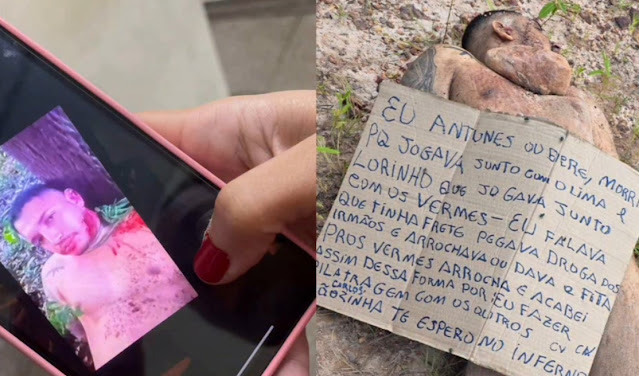 EU ANTUNES OU BERE, MORRI
PQ JOGAVA JUNTO COM O LIMA E
LORINHO QUE JOGAVA JUNTO
COM OS VERMES - EU FALAVA
QUE TINHA FRETE PEGAVA DROGA DOS
IRMÃOS E ARROCHAVA OU DAVA A FITA
PROS VERMES ARROCHA E ACABEI
ASSIM DESSA FORMA POR EU FAZER
PILATRAGEM COM OS OUTROS CV
CARLOS
TE ESPERO NO INFERNO